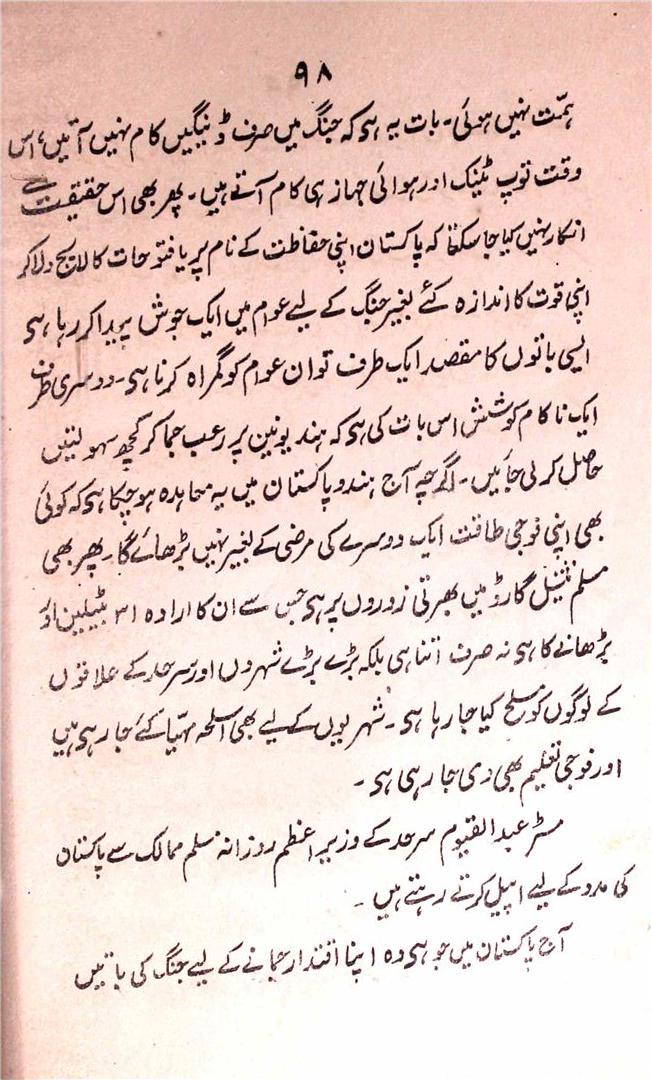 ۹۸
ہمّت نہیں ہوئی۔ بات یہ ہی کہ جنگ میں صرف ڈینگیں کام نہیں آتیں، اس
وقت توپ ٹینک اور ہوائی جہاز ہی کام آتے ہیں۔ پھر بھی اس حقیقت سے
انکار نہیں کیا جا سکتا کہ پاکستان اپنی حفاظت کے نام پر یا فتوحات کا لالچ دلا کر
اپنی قوت کا اندازہ کئے بغیر جنگ کے لیے عوام میں ایک جوش پیدا کر رہا ہی
ایسی باتوں کا مقصد ایک طرف تو ان عوام کو گمراہ کرنا ہی۔ دوسری طرف
ایک ناکام کوشش اس بات کی ہی کہ ہند یونین پر رعب جما کر کچھ سہولتیں
حاصل کر لی جائیں۔ اگرچہ آج ہند و پاکستان میں یہ معاہدہ ہو چکا ہی کہ کوئی
بھی اپنی فوجی طاقت ایک دوسرے کی مرضی کے بغیر نہیں بڑھائے گا۔ پھر بھی
مسلم نیشنل گارڈ میں بھرتی زوروں پر ہی جس سے ان کا ارادہ ۳۱ بٹیلین اور
بڑھانے کا ہی نہ صرف اتنا ہی بلکہ بڑے بڑے شہروں اور سرحد کے علاقوں
کے لوگوں کو مسلح کیا جا رہا ہی۔ شہریوں کے لیے بھی اسلحہ مہیّا کئے جا رہی ہیں
اور فوجی تعلیم بھی دی جا رہی ہی۔
مسٹر عبد القیوم سرحد کے وزیر اعظم روزانہ مسلم ممالک سے پاکستان
کی مدد کے لیے اپیل کرتے رہتے ہیں۔
آج پاکستان میں جو ہی وہ اپنا اقتدار جمانے کے لیے جنگ کی باتیں